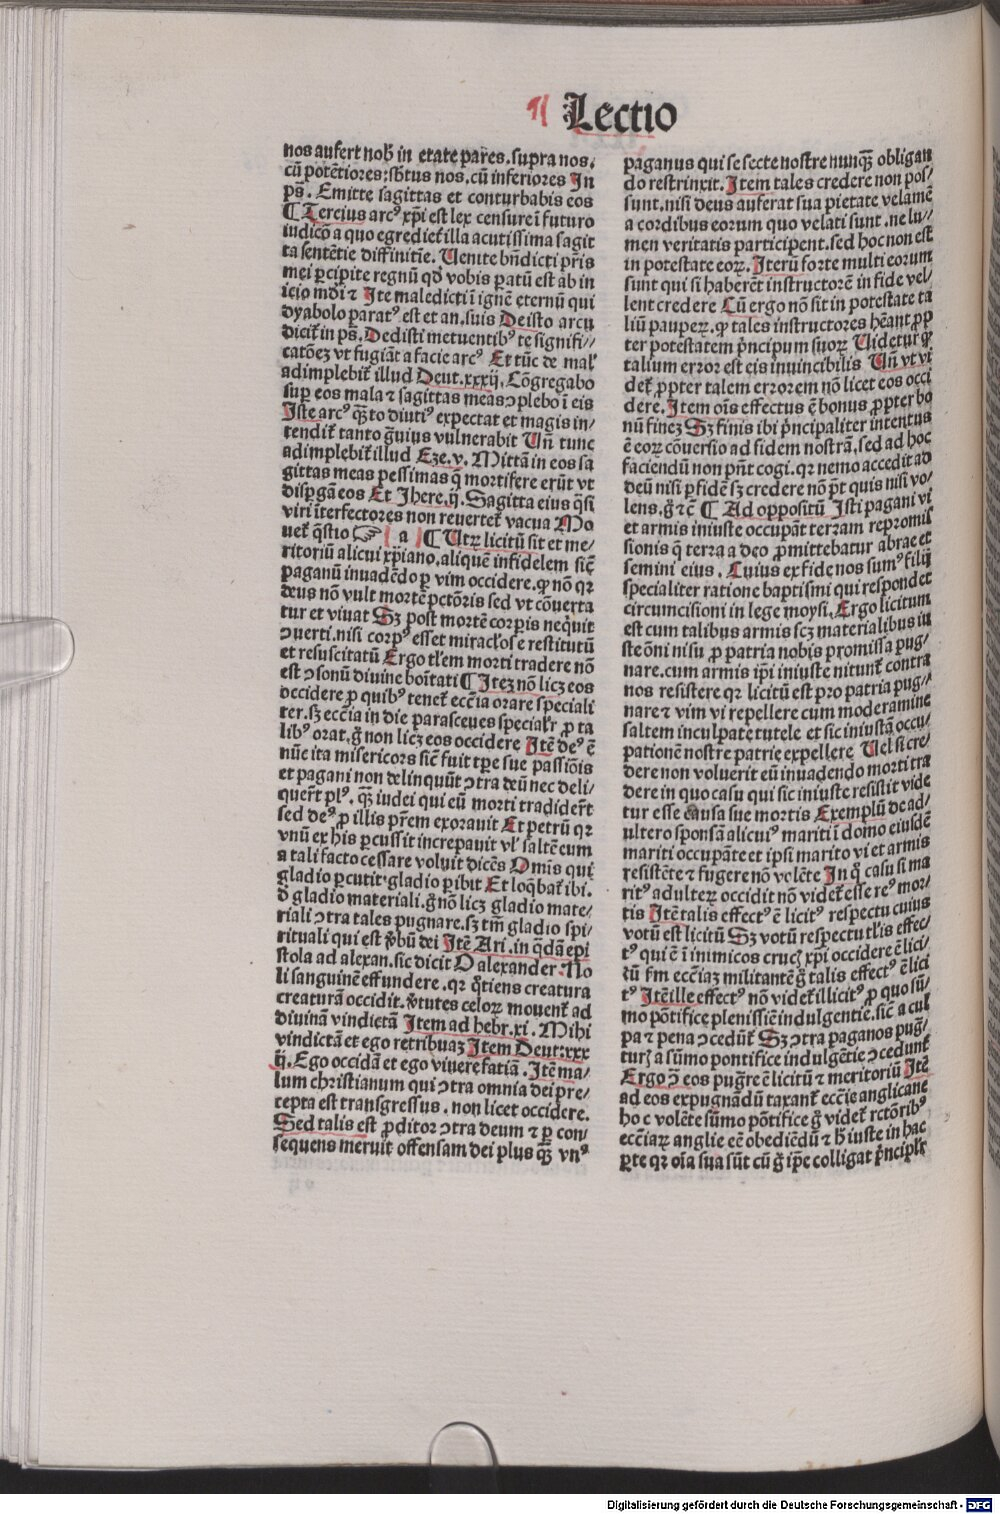 ¶ Lectio
nos aufert nob̄ in etate pares. supra nos.
cū potētiores; sb̄tus nos. cū inferiores In
ps̄. Emitte sagittas et conturbabis eos
¶ Tercius arcꝰ xp̄i est lex censure ī futuro
iudicō a quo egrediet᷑ illa acutissima sagit
ta sentētie diffinitīe. Uenite bn̄dicti pr̄is
mei ꝑcipite regnū qd̄ vobis ꝑatū est ab in
icio mōi ⁊ Ite maledicti ī ignē eternū qui
dyabolo ꝑaratꝰ est et an. suis De isto arcu
dicit᷑ in ps̄. Dedisti metuentibꝰ te signifi⸗
catōeꝫ vt fugiāt a facie arcꝰ Et tūc de mal᷑
adimplebit᷑ illud Deut. xxxij. Cōgregabo
suꝑ eos mala ⁊ sagittas meas ↄplebo ī eis
Iste arcꝰ qꝫto diutiꝰ expectat et magis in⸗
tendit᷑ tanto ḡuius vulnerabit Un̄ tunc
adimplebit᷑ illud Eze. v. Mittā in eos sa
gittas meas pessimas q̄ mortifere erūt vt
disꝑgā eos Et Jhere. ij. Sagitta eius q̄si
viri īterfectores non reuertet᷑ vacua Mo
uet᷑ q̄stio ☞ a ¶ Utꝝ licitū sit et me⸗
ritoriū alicui xp̄iano. aliquē infidelem sic̄
paganū inuadēdo ꝑ vim occidere. ꝙ nō qꝛ
deus nō vult mortē pctōris sed vt cōuerta
tur et viuat Sꝫ post mortē corꝑis neq̄it
ↄuerti. nisi corpꝰ esset miracl᷑ose restitutū
et resuscitatū Ergo tl᷑em morti tradere nō
est ↄsonū diuine boītati ¶ Iteꝫ nō licꝫ eos
occidere ꝓ quibꝰ tenet᷑ ecc̄ia orare speciali
ter. sꝫ ecc̄ia in die parasceues specialr᷑ ꝓ ta
libꝰ orat. ḡ non licꝫ eos occidere Itē deꝰ ē
nūc ita misericors sic̄ fuit tꝑe sue passiōis
et pagani non delinquūt ↄtra deū nec deli⸗
quer̄t plꝰ. qꝫ iudei qui eū morti tradider̄t
sed deꝰ ꝓ illis pr̄em exorauit Et petrū qꝛ
vnū ex his ꝑcussit increpauit vl᷑ saltē eum
a tali facto cessare voluit dicēs Omīs qui
gladio ꝑcutit gladio ꝑibit Et loq̄bat᷑ ibi.
đ gladio materiali. ḡ nō licꝫ gladio mate⸗
riali ↄtra tales pugnare. sꝫ tm̄ gladio spi⸗
rituali qui est v̄bū dei Itē Ari. in q̄dā epi
stola ad alexan. sic dicit O alexander No
li sanguinē effundere. qꝛ q̄tiens creatura
creaturā occidit. v̄tutes celoꝝ mouent᷑ ad
diuinā vindictā Item ad hebr. xi. Mihi
vindictā et ego retribuaꝫ Item Deut. xxx
ij. Ego occidā et ego viuere fatiā. Itē ma⸗
lum christianum qui ↄtra omnia dei pre⸗
cepta est transgressus. non licet occidere.
Sed talis est ꝓditor ↄtra deum ⁊ ꝑ con⸗
sequens meruit offensam dei plus qꝫ vnꝰ
paganus qui se secte nostre nunqꝫ obligan
do restrinxit. Item tales credere non pos⸗
sunt. nisi deus auferat sua pietate velamē
a cordibus eorum quo velati sunt. ne lu⸗
men veritatis participent. sed hoc non est
in potestate eoꝝ. Iterū forte multi eorum
sunt qui si haberēt instructorē in fide vel⸗
lent credere Cū ergo nō sit in potestate ta
liū pauꝑeꝝ. ꝙ tales instructores hēant ꝓp
ter potestatem p̄ncipum suoꝝ Uidetur ꝙ
talium error est eis inuincibilis Un̄ vt vi
det᷑ ꝓpter talem errorem nō licet eos occi
dere. Item oīs effectus ē bonus ꝓpter bo
nū fineꝫ Sꝫ finis ibi p̄ncipaliter intentus
ē eoꝝ cōuersio ad fidem nostrā. sed ad hoc
faciendū non pn̄t cogi. qꝛ nemo accedit ad
deū nisi ꝑ fidē sꝫ credere nō pōt quis nisi vo⸗
lens. ḡ ⁊c̄ ¶ Ad oppositū Isti pagani vi
et armis iniuste occupāt terram repromis
sionis q̄ terra a deo ꝓmittebatur abrae et
semini eius. Cuius ex fide nos sumꝰ filij
specialiter ratione baptismi qui respondet
circumcisioni in lege moysi. Ergo licitum
est cum talibus armis scꝫ materialibus iu
ste ōni nisu ꝓ patria nobis promissa pug⸗
nare. cum armis ip̄i iniuste nitunt᷑ contra
nos resistere qꝛ licitū est pro patria pug⸗
nare ⁊ vim vi repellere cum moderamine
saltem inculpate tutele et sic iniustā occu⸗
pationē nostre patrie expellere Uel si cre⸗
dere non voluerit eū inuadendo morti tra
dere in quo casu qui sic iniuste resistit vide
tur esse causa sue mortis Exemplū de ad⸗
ultero sponsā alicuiꝰ mariti ī domo eiusdē
mariti occupāte et ipsi marito vi et armis
resistēte ⁊ fugere nō volēte In q̄ casu si ma
ritꝰ adulteꝝ occidit nō videt᷑ esse reꝰ mor⸗
tis Itē talis effectꝰ ē licitꝰ respectu cuius
votū est licitū Sꝫ votū respectu tl᷑is effec⸗
tꝰ qui ē ī inimicos crucꝭ xp̄i occidere ē lici⸗
tū fm ecc̄iaꝫ militantē ḡ talis effectꝰ ē lici
tꝰ Itē ille effectꝰ nō videt᷑ illicitꝰ ꝓ quo sū⸗
mo pōtifice plenissiē indulgentie. sic̄ a cul
pa ⁊ pena ↄcedūt᷑ Sꝫ ↄtra paganos puḡ⸗
turꝭ a sūmo pontifice indulgētie ↄcedunt᷑
Ergo ↄ̄ eos puḡre ē licitū ⁊ meritoriū Itē
ad eos expugnādū taxant᷑ ecc̄ie anglicane
hoc volēte sūmo pōtifice ḡ videt᷑ rctōribꝰ
ecc̄iaꝝ anglie eē obediēdū ⁊ h᷑ iuste in hac
ꝑte qꝛ oīa sua sūt cū ḡ ip̄e colligat p̄ncipl᷑r
Digitalisierung gefördert durch die Deutsche Forschungsgemeinschaft - DFG